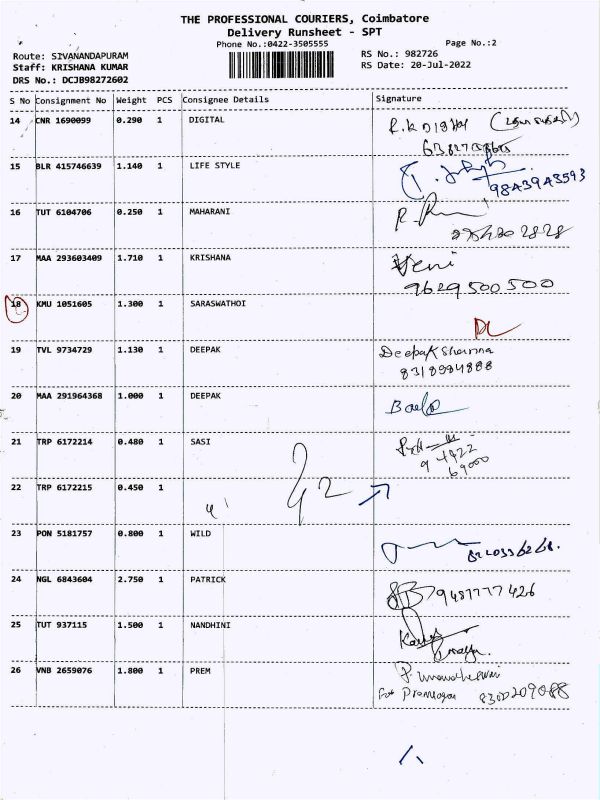 THE PROFESSIONAL COURIERS, Coimbatore
Delivery Runsheet - SPT
Phone No.:0422-3505555
Page No.:2
Route: SIVANANDAPURAM
RS No.: 982726
Staff: KRISHANA KUMAR
RS Date: 20-Jul-2022
DRS No.: DCJB98272602
S No Consignment No Weight PCS Consignee Details Signature
14 CNR 1690099 0.290 1 DIGITAL
15 BLR 415746639 1.140 1 LIFE STYLE
9843943593
16 TUT 6104706 0.250 1 MAHARANI
17 MAA 293603409 1.710 1 KRISHANA Veni
9629500500
18 KMU 1051605 1.300 1 SARASWATHOI
DL
19 TVL 9734729 1.130 1 DEEPAK Deepak Sharma
20 MAA 291964368 1.000 1 DEEPAK
21 TRP 6172214 0.480 1 SASI
94422
69000
22 TRP 6172215 0.450 1
23 PON 5181757 0.800 1 WILD
24 NGL 6843604 2.750 1 PATRICK
9487777426
25 TUT 937115 1.500 1 NANDHINI
26 VNB 2659076 1.800 1 PREM
8300209088